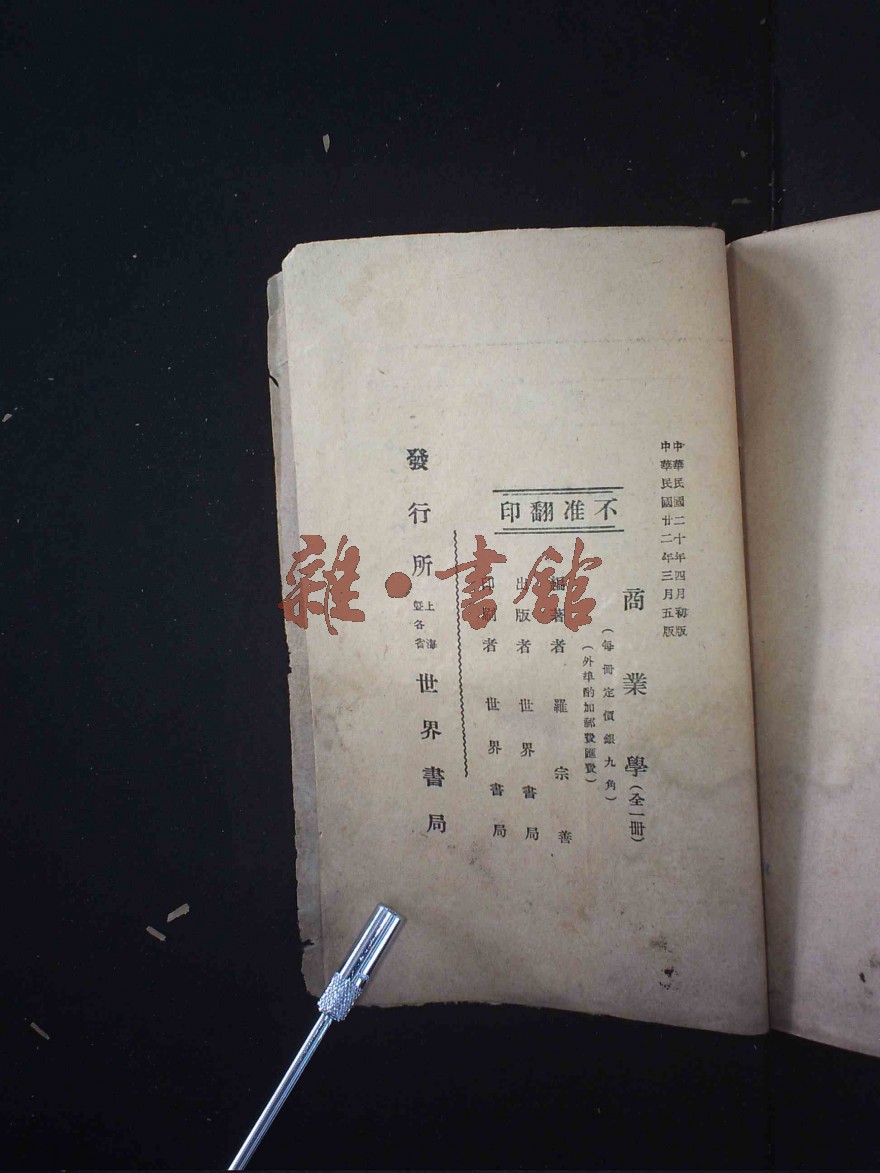 中華民國二十年四月初版
中華民國廿二年三月五版
商業學(全一冊)
(每冊定價銀九角)
(外埠酌加郵費匯費)
不准翻印
編著者 羅宗善
出版者 世界書局
印刷者 世界書局
發行所 上海暨各省 世界書局
雜·書館